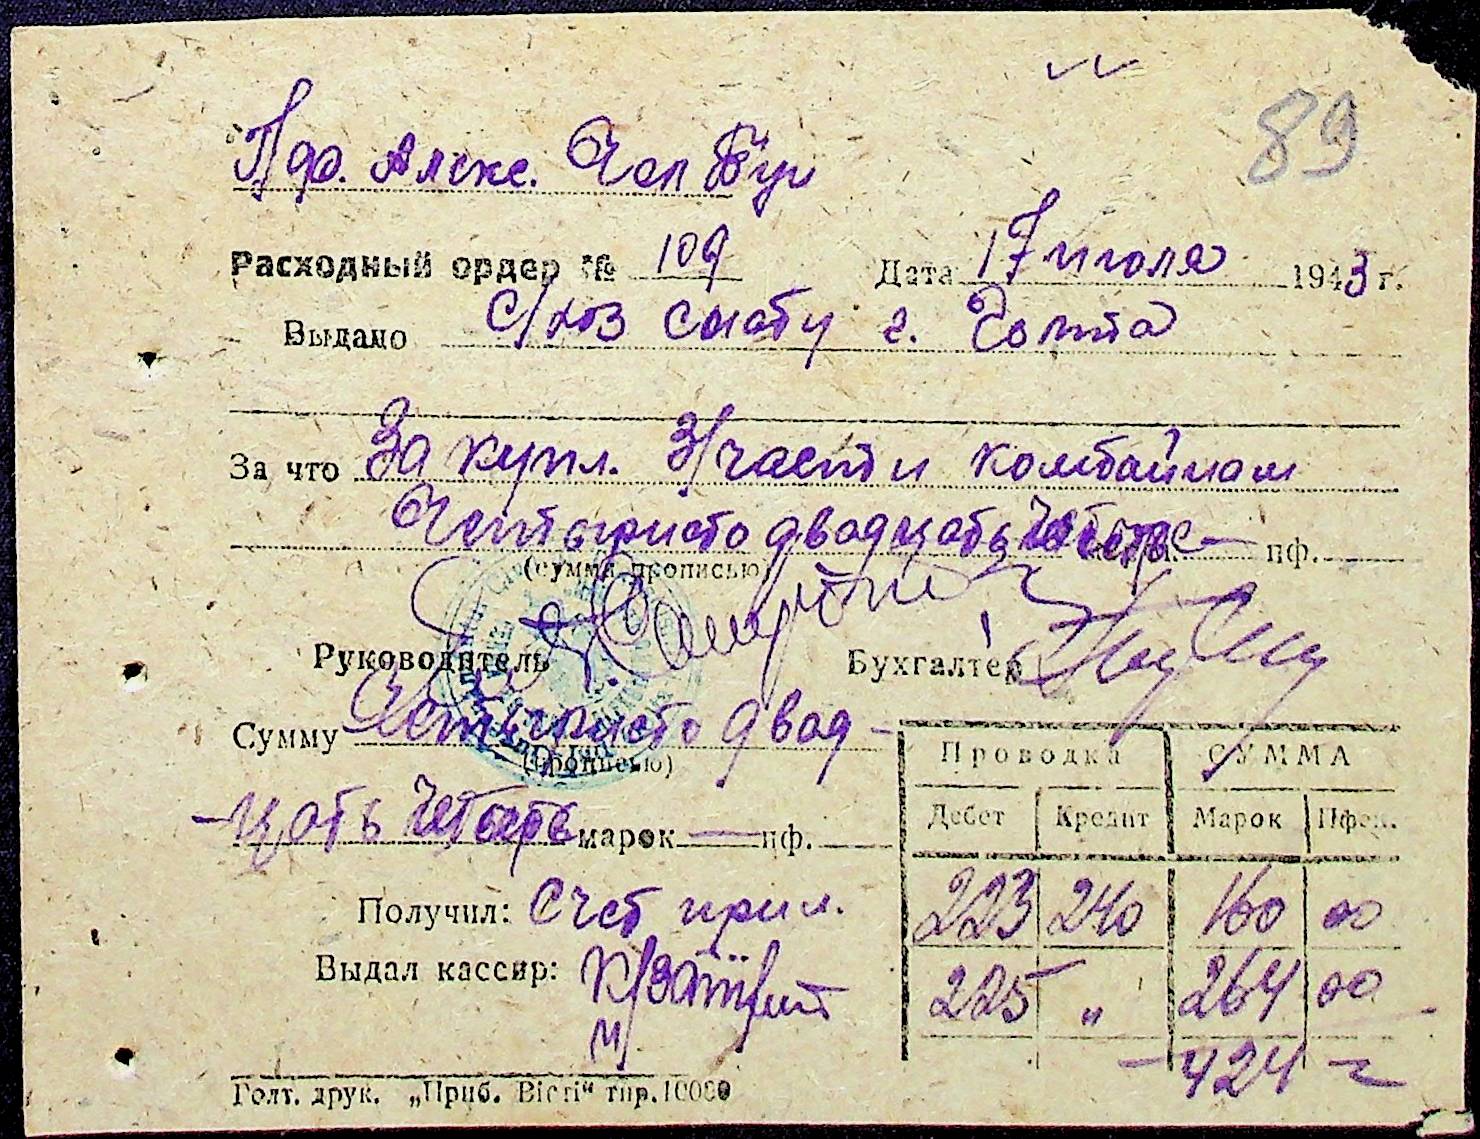 89
Расходный ордер № 109 Дата 17 июля 1943 г.
Выдано С/хоз снабу г. Голта
За что За купл. З/части комбайнам
Четыристо двадцать четыре — пф.
(сумма прописью)
Руководитель Бухгалтер
Сумму Четыристо двад-
(прописью)
-цать четыре марок — пф.
Проводка СУММА
Дебет Кредит Марок Пфен.
Получил: Счет прил. 223 240 160 00
Выдал кассир: 225 " 264 00
— 424 —
Голт. друк. „Приб. Вісті“ тир. 10000